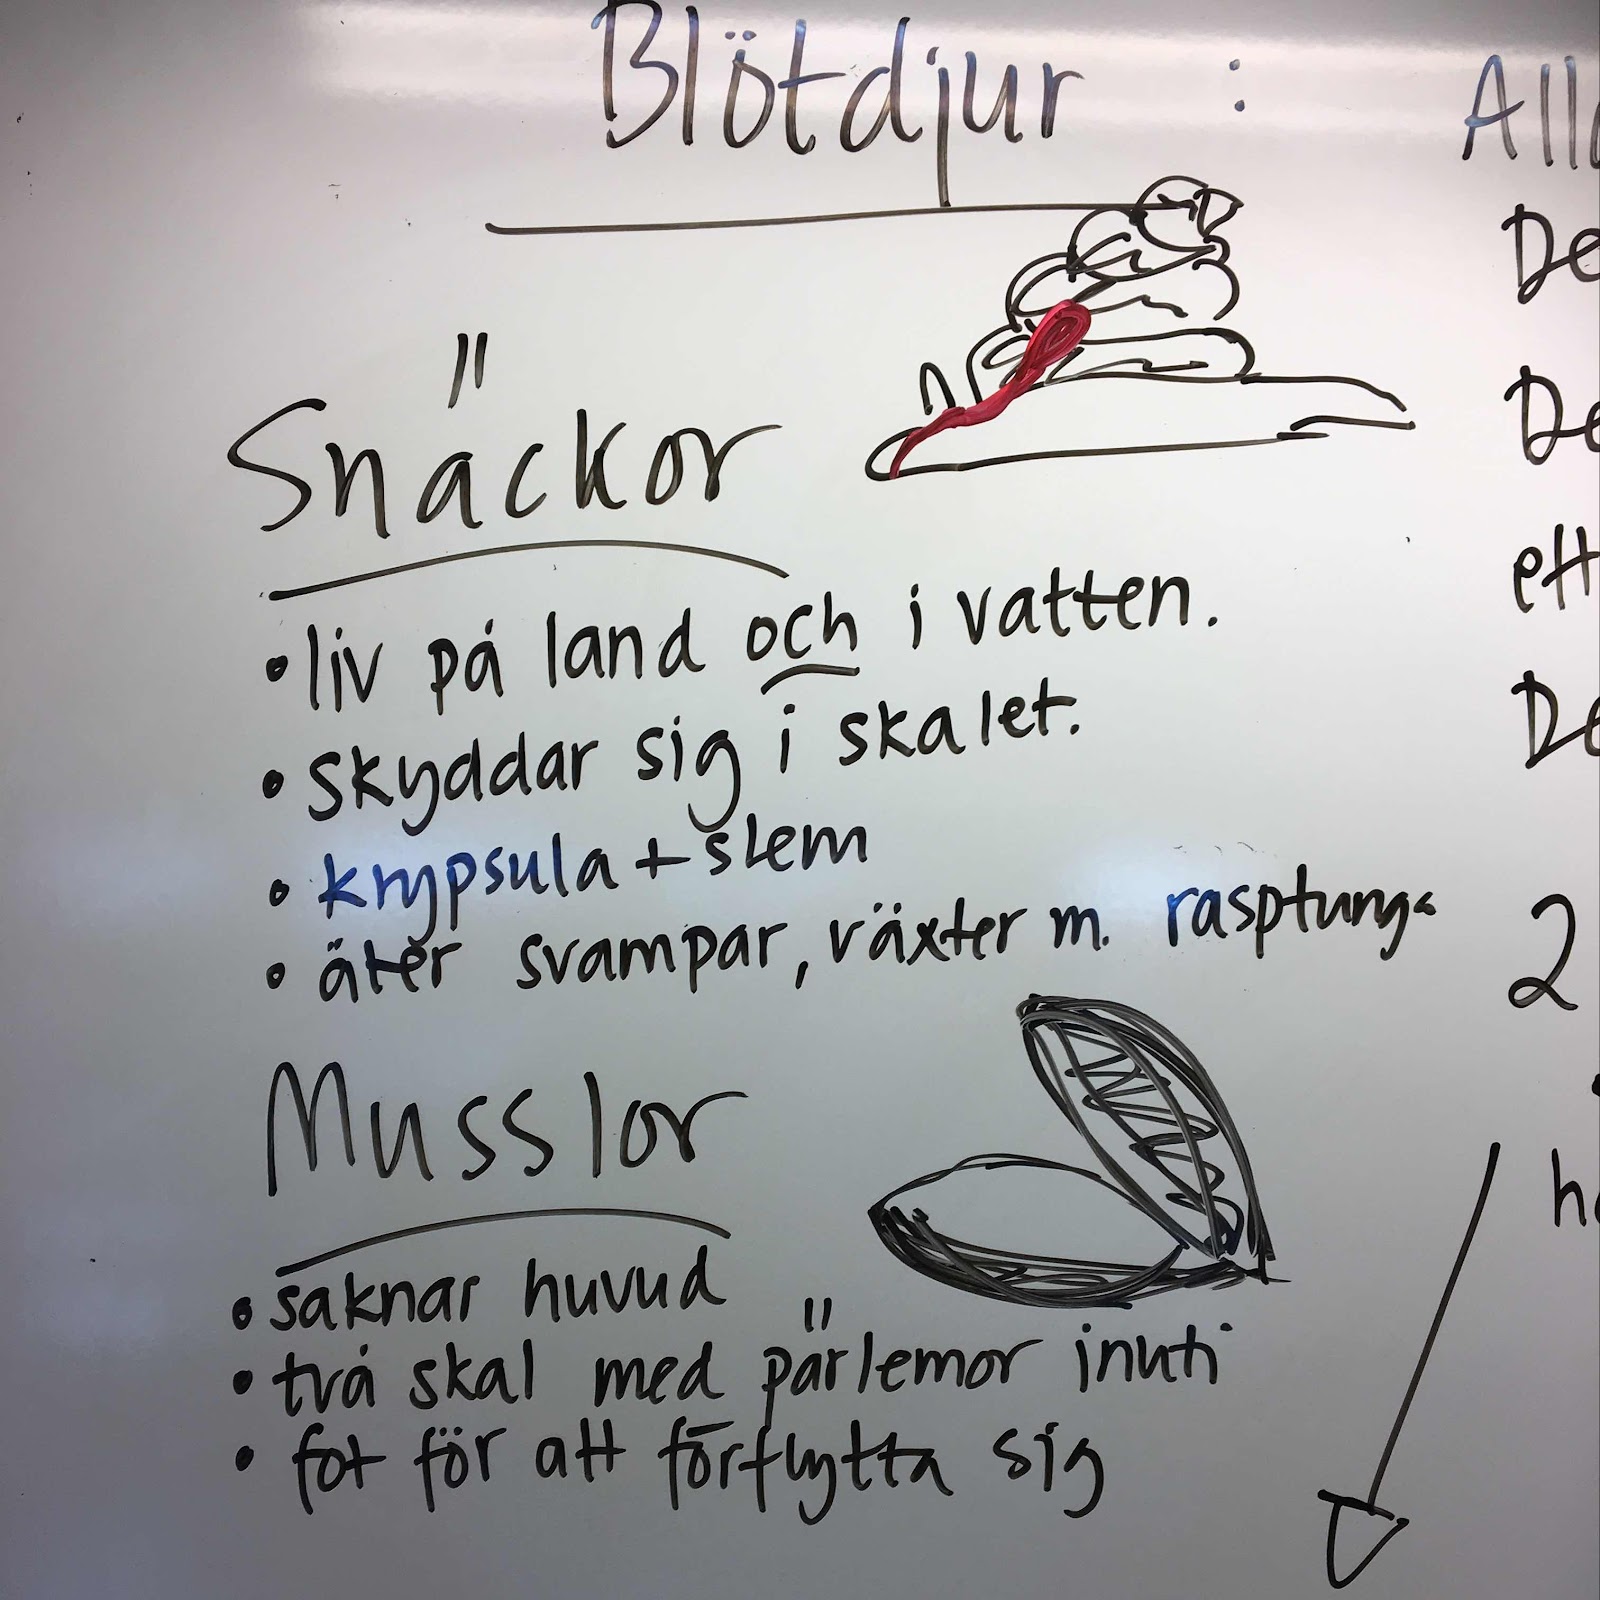 Blötdjur :
Snäckor
• liv på land och i vatten.
• skyddar sig i skalet.
• krypsula + slem
• äter svampar, växter m. rasptunga
Musslor
• saknar huvud
• två skal med pärlemor inuti
• fot för att förflytta sig
All
De
De
ett
De
2